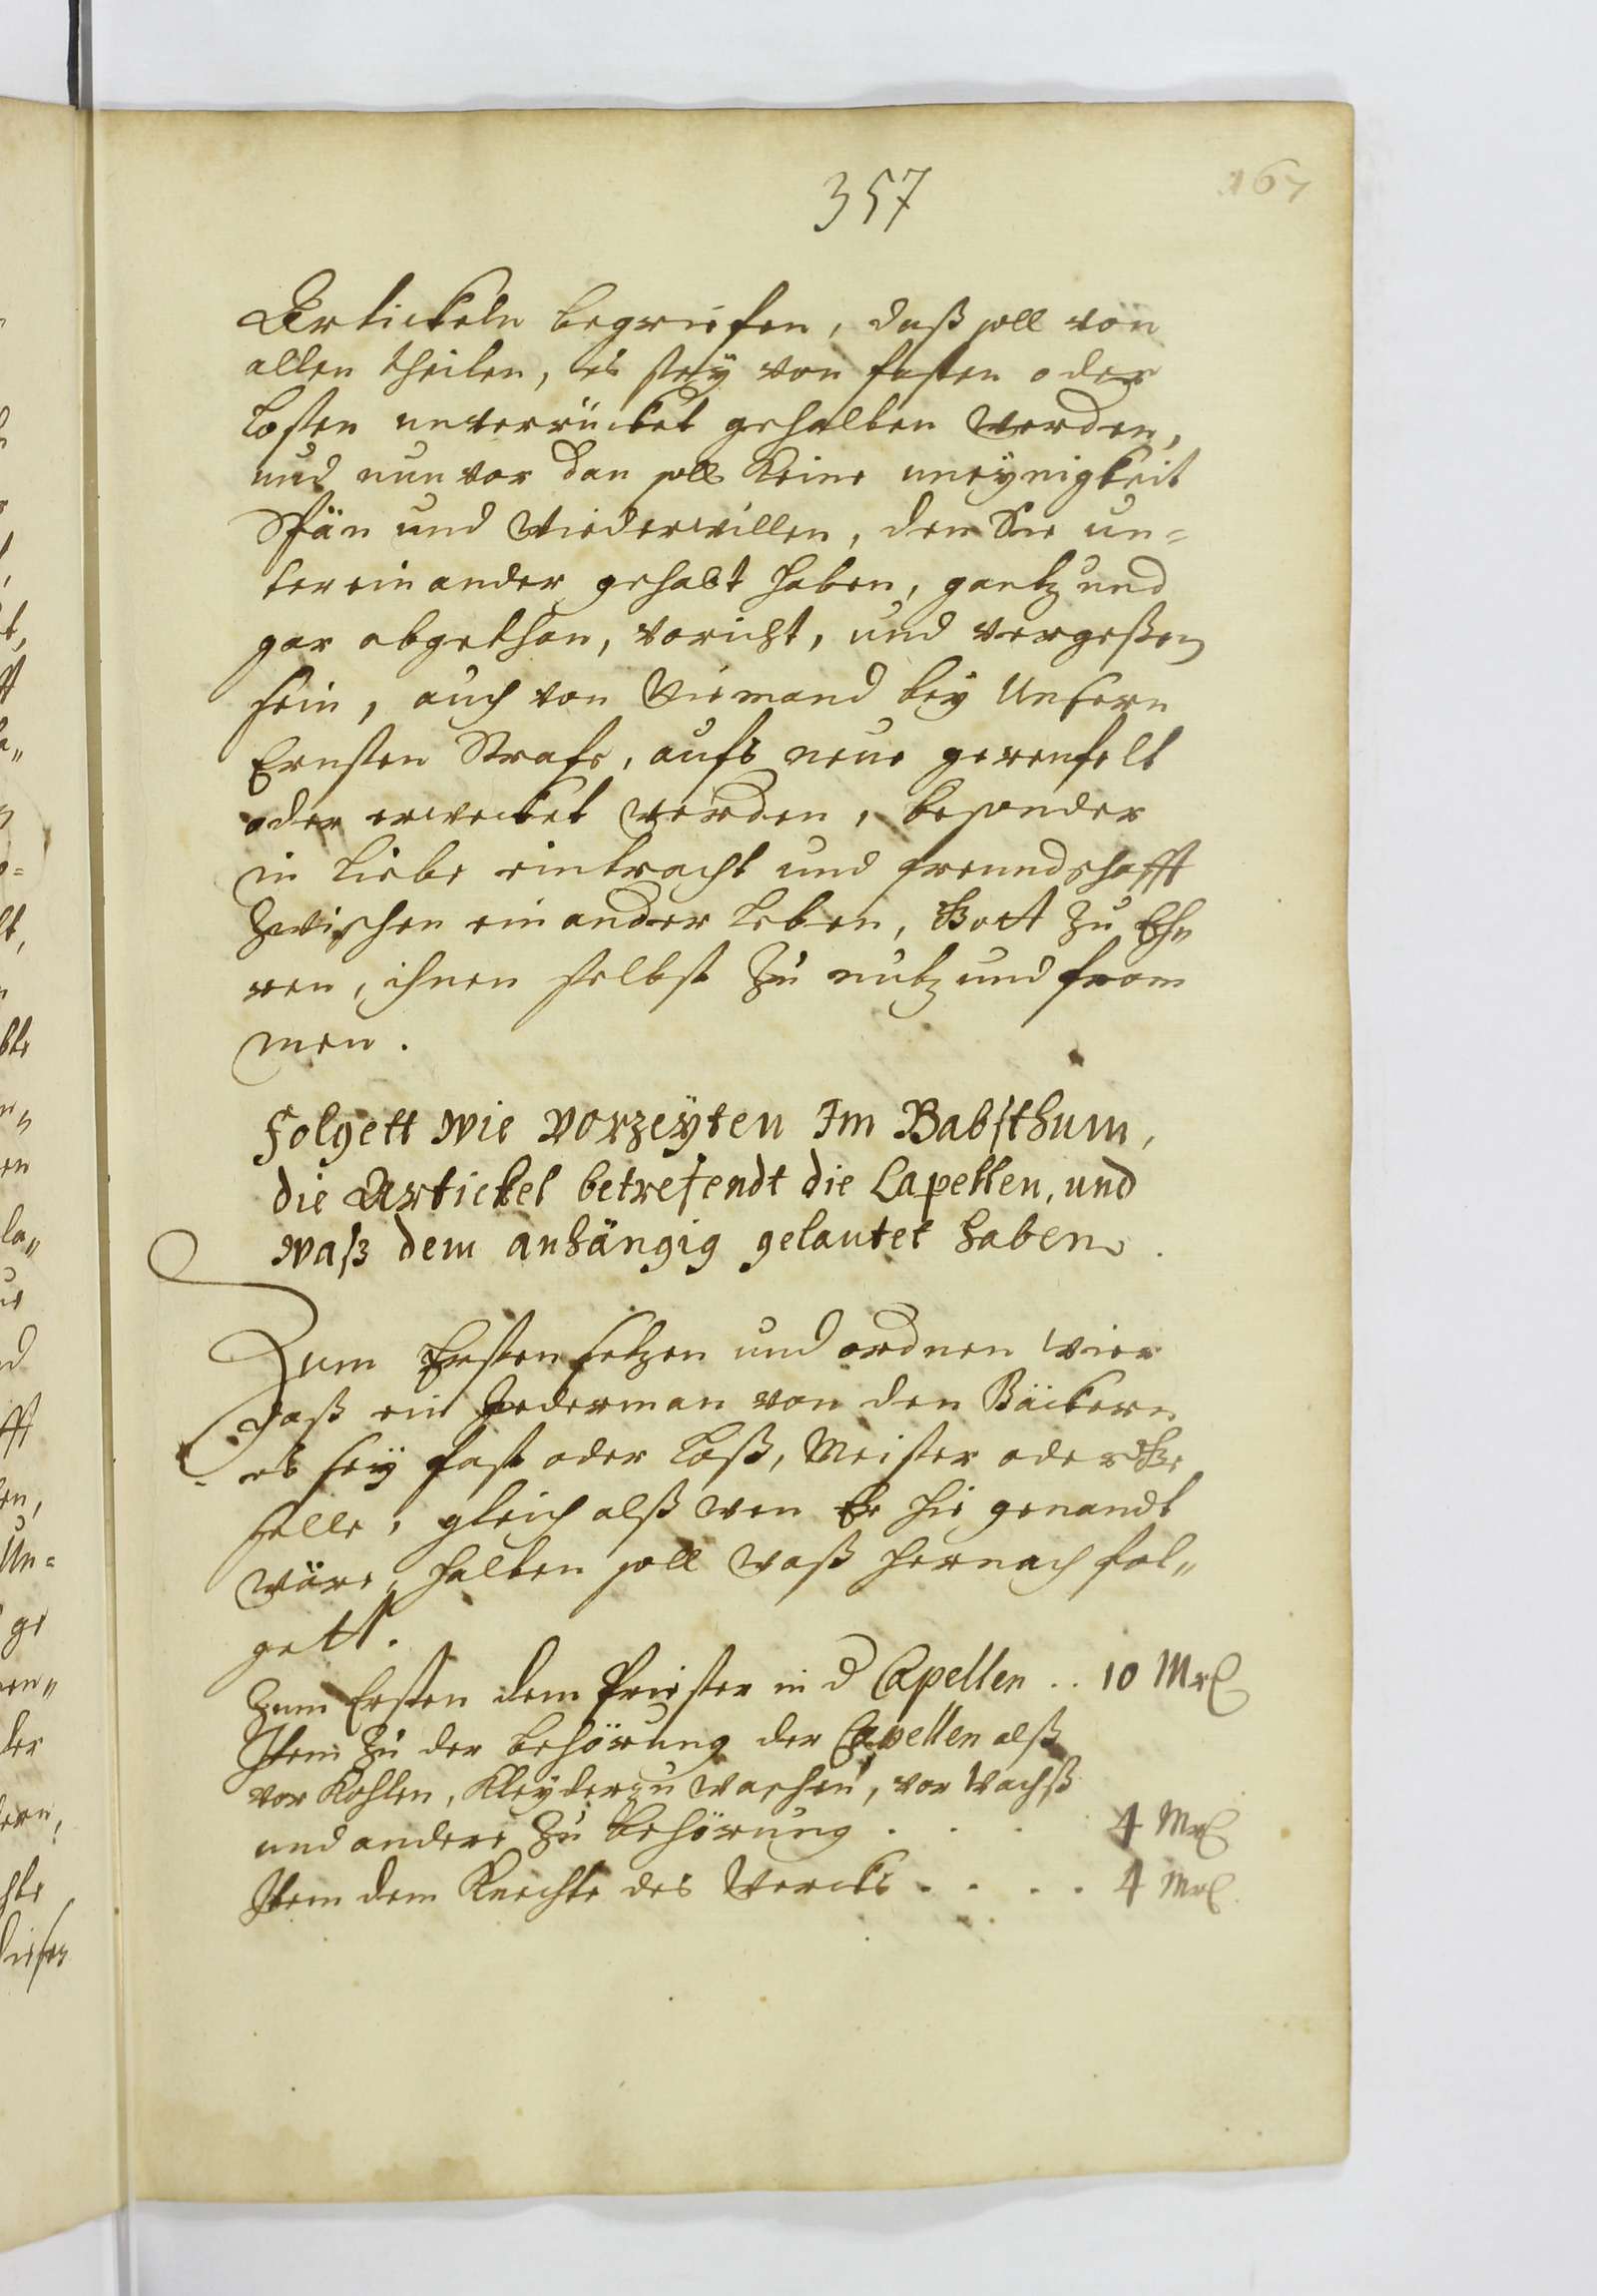 357
167
Artickeln begriefen, daß soll von
allen theilen, es seÿ von fasten oder
Losten unverrücket gehalten werden,
und nun vor dan soll Keine uneÿnigkeit
Spän und Wiederwillen, den Sie un=
ter ein ander gehabt haben, gantz und
gar abgethan, voricht, und vergeßen
sein, auch von Niemand beÿ Unsern
Ernsten Strafe, aufs neue gerenselt
oder erwecket werden, besonder
in Liebe eintracht und freundschafft
Zwischen ein ander leben, Gott zu Eh„
ren, ihnen selbst Zu nutz und from
men.
Folgett wie vorzeÿten Im Babsthum,
die Artickel betrefendt die Capellen, und
waß dem anhängig gelautet haben.
Zum Ersten setzen und ordnen wier
daß ein Jederman von den Bäckern
es seÿ fast oder loß, Meister oder Ge
selle, gleich alß wen Er hie genandt
wäre, halten soll waß hernach fol„
gett.
Zum Ersten dem Priester in d Capellen .. 10 Mr
Item Zu der behörung der Capellen alß
vor Kohlen, Kleÿder zu waschen, vor Wachß
und andere Zu behörung . . . 4 Mr
Item dem Knechte des Wercks . . . . 4 Mr